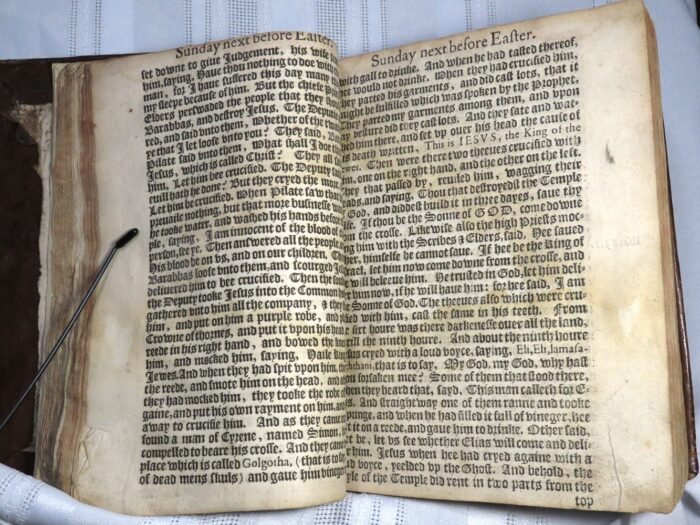 Sunday next before Easter.
set downe to giue Judgement, his wife
him, saying, Haue thou nothing to doe with
man. for I haue suffered this day many
my sleepe because of him. But the chiefe
Elders perswaded the people that they
Barabbas, and destroy Jesus. The Deputy
red, and said vnto them, Whether of the
ye that I let loose vnto you? They said,
Pilate said vnto them, What shall I doe
Jesus, which is called Christ? They all
him, Let him bee crucified. The Deputy
euill hath he done? But they cryed the more
Let him be crucified. When Pilate saw that
preuaile nothing, but that more businesse
he tooke water, and washed his hands before
ple, saying, I am innocent of the blood of
person, see ye. Then answered all the people,
His blood be on vs, and on our children. Then
Barabbas loose vnto them, and scourged
deliuered him to bee crucified. Then the
the Deputy tooke Jesus into the Common
gathered vnto him all the company, &
him, and put on him a purple robe, and
Crowne of thornes, and put it vpon his head
reede in his right hand, and bowed the
him, and mocked him, saying, Haile
Jewes. And when they had spit vpon him,
the reede, and smote him on the head, and
they had mocked him, they tooke the robe
gaine, and put his own rayment on him, and
away to crucifie him. And as they came
found a man of Cyrene, named Simon,
compelled to beare his crosse. And they came
place which is called Golgotha, (that is to
of dead mens skuls) and gaue him vineger
Sunday next before Easter.
with gall to drinke. And when he had tasted thereof,
he would not drinke. When they had crucified him,
they parted his garments, and did cast lots, that it
might be fulfilled which was spoken by the Prophet.
They parted my garments among them, and vpon
my vesture did they cast lots. And they sate and wat-
him there, and set vp ouer his head the cause of
his death written, This is IESVS, the King of the
Iewes. Then were there two theeues crucified with
him, one on the right hand, and the other on the left.
They that passed by, reuiled him, wagging their
heads, and saying, Thou that destroyedst the Temple
of God, and diddest build it in three dayes, saue thy
selfe. If thou be the Sonne of GOD, come downe
from the crosse. Likewise also the high Priests moc-
king him with the Scribes & Elders, said, Hee saued
other, himselfe he cannot saue. If hee be the King of
Israel, let him now come down from the crosse, and
we will beleeue him. He trusted in God, let him deli-
uer him now, if he will haue him: for hee said, I am
the Sonne of God. The theeues also which were cru-
cified with him, cast the same in his teeth. From
the sixt houre was there darkenesse ouer all the land,
till the ninth houre. And about the ninth houre
Jesus cryed with a loud voyce, saying, Eli, Eli, lamasa-
bachthani, that is to say, My God, my God, why hast
thou forsaken mee? Some of them that stood there,
when they heard that, sayd, This man calleth for E-
lias. And straightway one of them ranne and tooke
a spunge, and when he had filled it full of vineger, hee
put it on a reede, and gaue him to drinke. Other said,
Let be, let vs see whether Elias will come and deli-
uer him. Jesus when hee had cryed againe with a
loud voyce, yeelded vp the Ghost. And behold, the
vaile of the Temple did rent in two parts from the
top